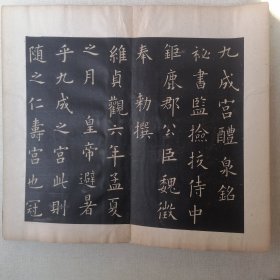 九成宮醴泉銘
秘書監撿挍侍中
鉅鹿郡公臣魏徵
奉勑撰
維貞觀六年孟夏
之月皇帝避暑
乎九成之宮此則
隨之仁壽宮也冠